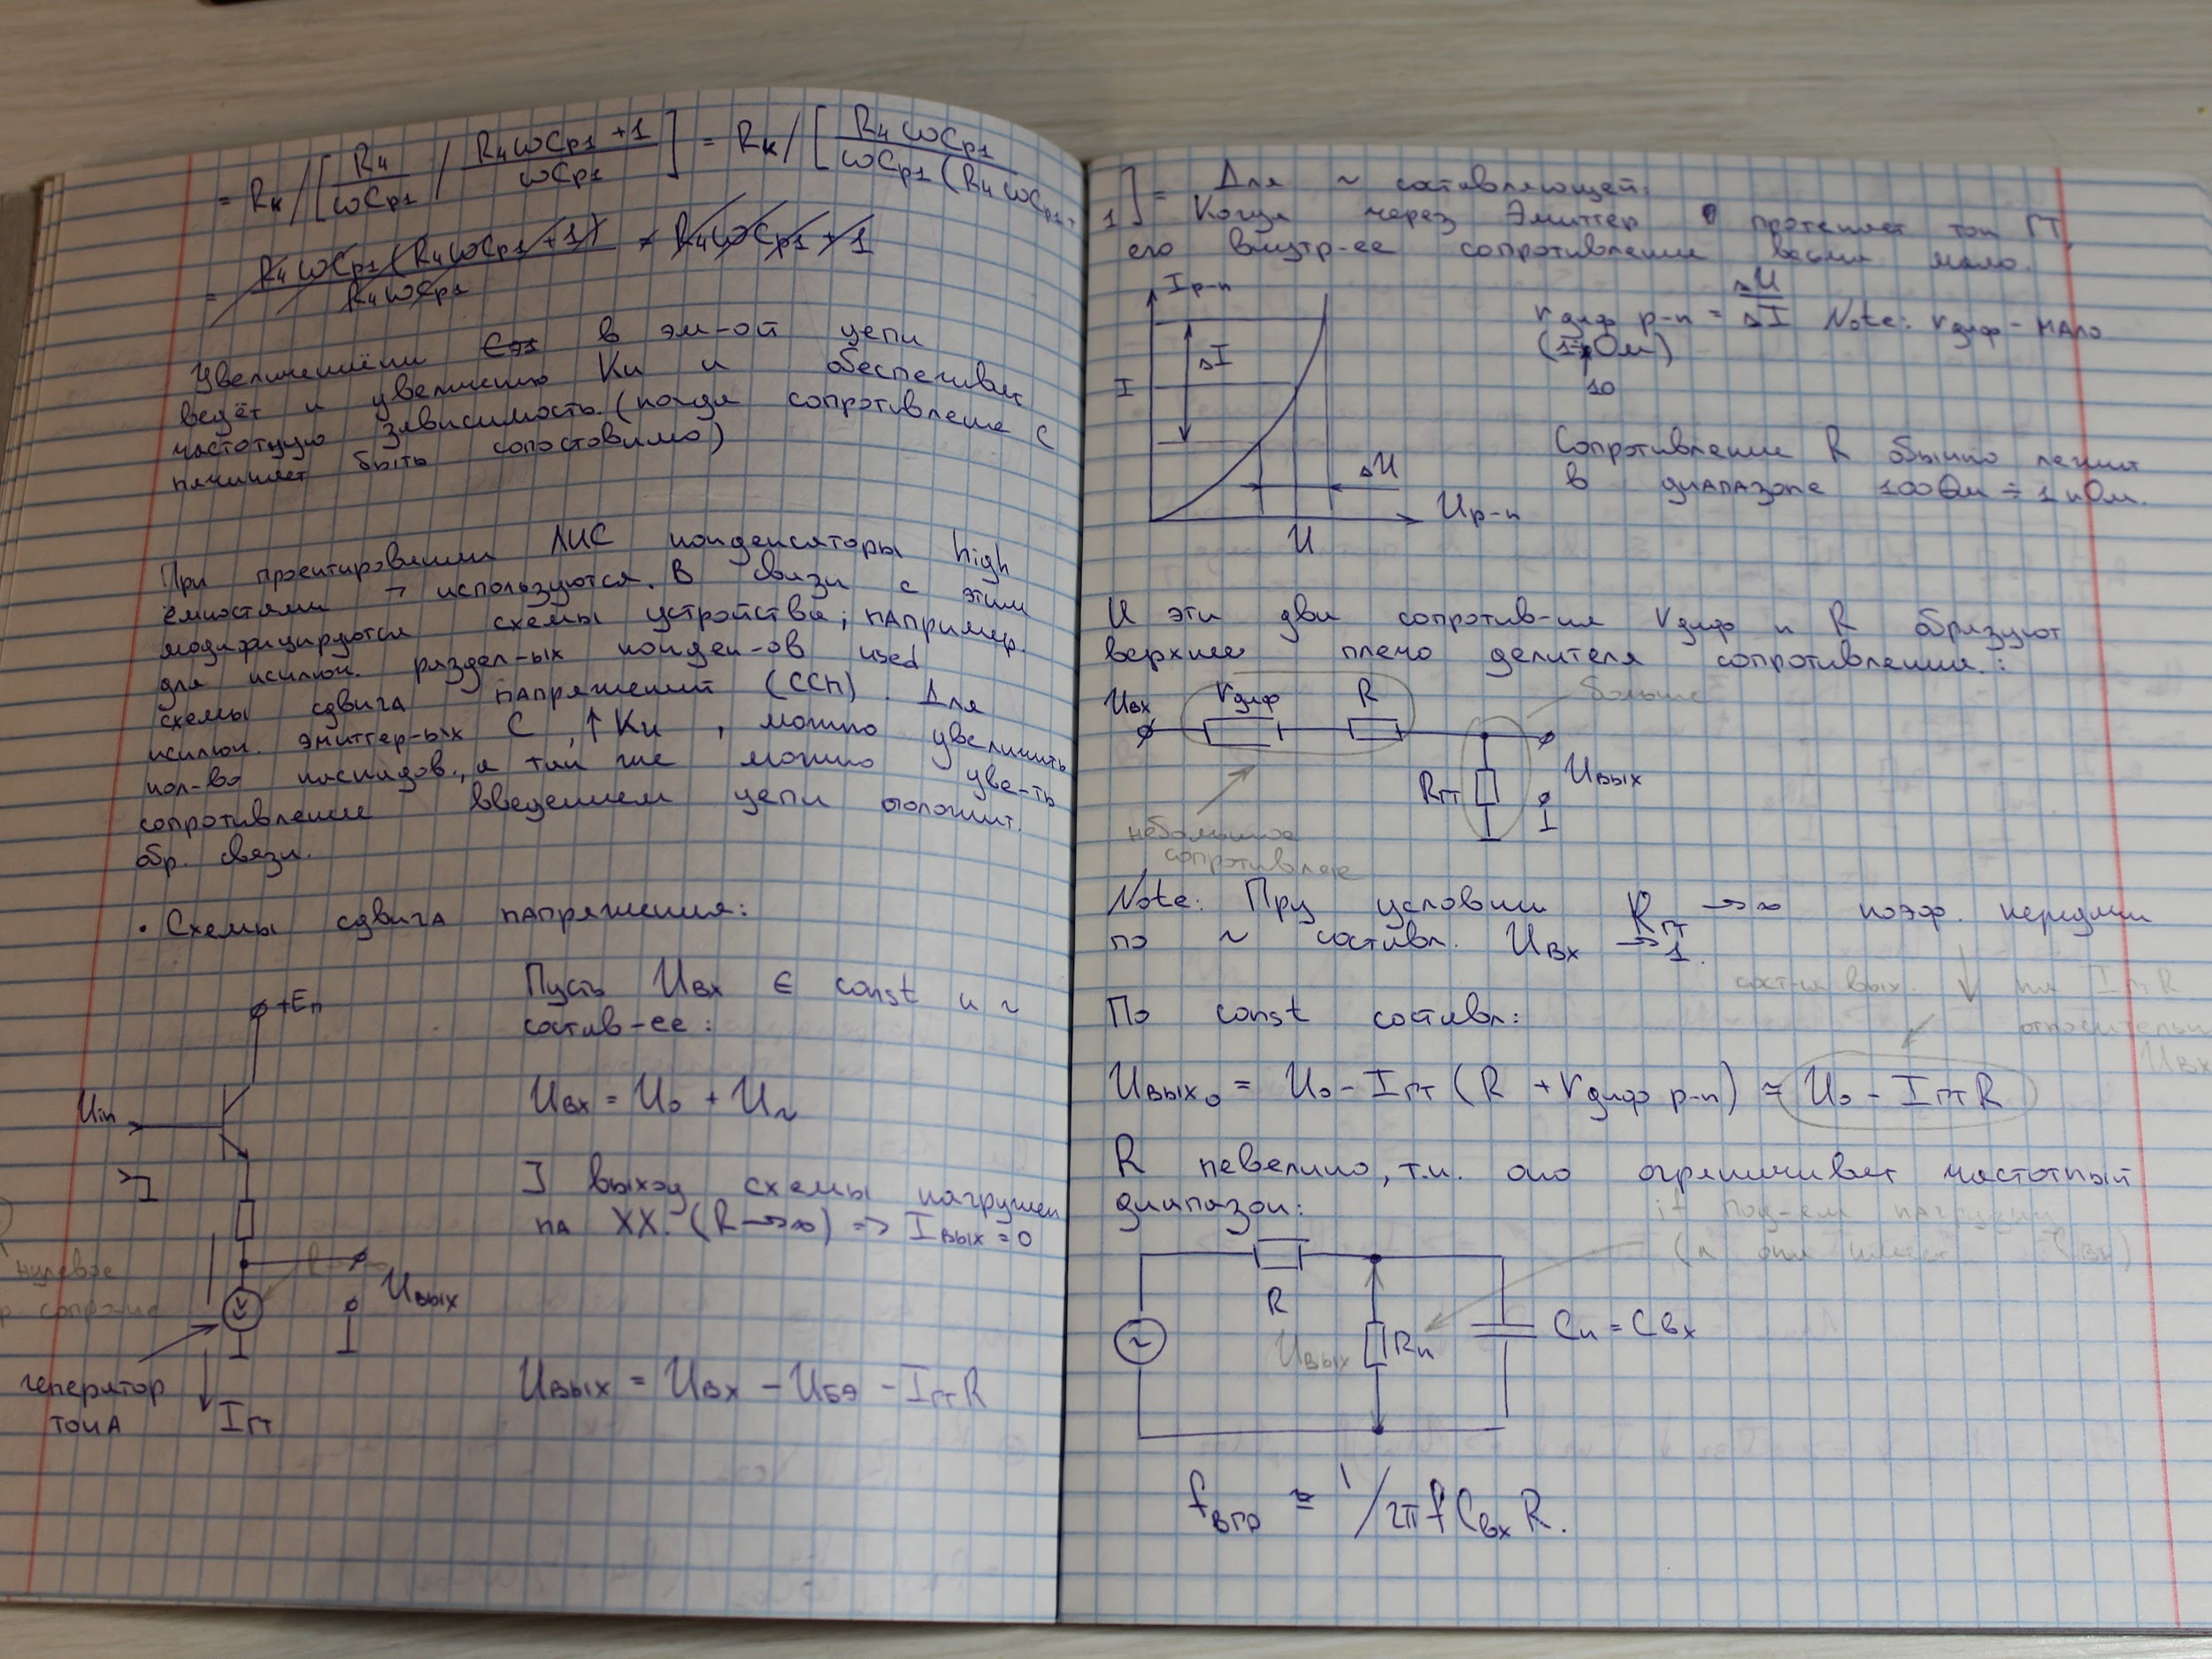 = Rк / [ Rч/ωCр1 / (RчωCр1 + 1)/ωCр1 ] = Rк / [ RчωCр1 / ωCр1 (RчωCр1 +
= RчωCр1 (RчωCр1 + 1) / RчωCр1 ≠ RчωCр1 + 1
Увеличениёни Cэ в эм-ой цепи
ведёт к увеличению Kи и обеспечивает
частотную зависимость. (когда сопротивление C
начинает быть сопоставимо)
При проектировании ЛИС конденсаторы high
ёмкостями ¬ используются. В связи с этим
модифицируются схемы устройства; например.
для исключ. раздел-ых конден-ов used
схемы сдвига напряжений (ССН). Для
исключ. эмиттер-ых C, ↑Kи, можно увеличить
кол-во каскадов, а так же можно уве-ть
сопротивление введением цепи положит.
обр. связи.
• Схемы сдвига напряжения:
+Eп
Пусть Uвх ∈ const и ~
состав-ее:
Uin
Uвх = U₀ + U~
] выход схемы нагружен
на XX. (R → ∞) => Iвых = 0
нулевое
Uвых
генератор
тока
Iгт
Uвых = Uвх - Uбэ - IгтR
1] = Для ~ составляющей:
Когда через Эмиттер протекает ток ГТ,
его внутр-ее сопротивление весьма мало.
Ip-n
rдиф p-n = ΔU/ΔI Note: rдиф - мало
(1÷ Ом)
10
ΔI
I
Сопротивление R обычно лежит
в диапазоне 100 Ом ÷ 1 кОм.
ΔU
Up-n
U
И эти два сопротив-ия rдиф и R образуют
верхнее плечо делителя сопротивления:
больше
Uвх rдиф R
Rгт Uвых
небольшое
сопротивление
Note: При условии Rгт → ∞ коэф. передачи
по ~ составл. Uвх → 1.
сост-я вых. ↓ на IгтR
относительно
Uвх
По const составл:
Uвых₀ = U₀ - Iгт (R + rдиф p-n) ≈ U₀ - IгтR
R невелико, т.к. оно ограничивает частотный
диапазон:
if под-ем нагрузку
(а она имеет Cвх)
R
Uвых Rн Cн = Cвх
fвгр ≅ 1/2πfCвхR.